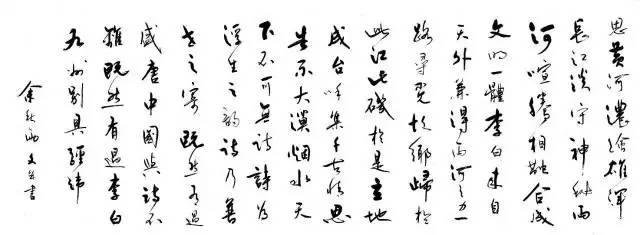 思黄河濃繪雄渾
長江淡守神秘兩
河喧騰相融合成
文的一體李白來自
天外兼得兩河之力一
路尋覓故鄉歸於
此江此磯於是立地
成台呼集千古情思
告示大漠烟水天
下不可無詩詩為
浮生之韻詩乃普
世之寄既然有過
盛唐中國與詩不
離既然有過李白
九州別具經緯
余秋雨文並書